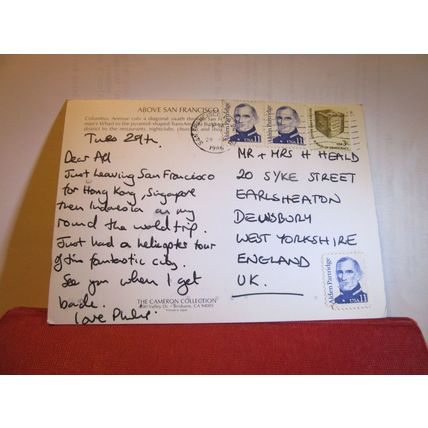 ABOVE SAN FRANCISCO
Columbus Avenue cuts a diagonal swath through San
to the pyramid-shaped TransAmerica Building
district to the restaurants, nightclubs,
Tues 29th.
Dear All
Just leaving San Francisco
for Hong Kong, Singapore
then Indonesia on my
round the world trip.
Just had a helicopter tour
of this fantastic city.
See you when I get
back.
Love
THE CAMERON COLLECTION
Valley Dr. • Brisbane, CA 94005
1986
Alden Partridge
USA 11
Alden Partridge
USA 11
MR + MRS H HEALD
20 SYKE STREET
EARLSHEATON
DEWSBURY
WEST YORKSHIRE
ENGLAND
UK.
Alden Partridge
USA 11